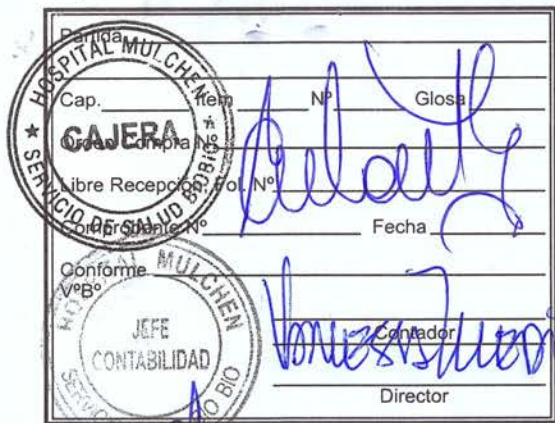 Partida
Cap. Item Nº Glosa
Orden Compra Nº
Libre Recepción, Fol. Nº
Comprobante Nº Fecha
Conforme
VºBº
Contador
Director
HOSPITAL MULCHEN
CAJERA
★ SERVICIO DE SALUD BIOBIO ★
HOSPITAL MULCHEN
JEFE
CONTABILIDAD
BIO BIO